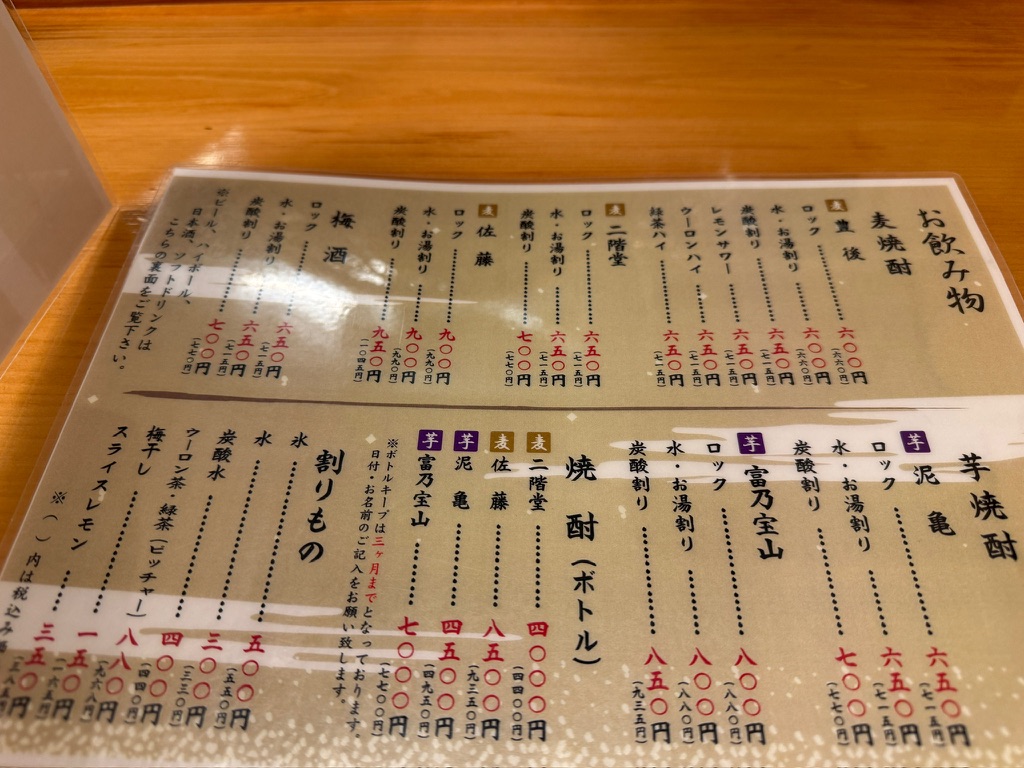 お飲み物
麦焼酎
麦 豊後
ロック………六〇〇円(六六〇円)
水・お湯割り………六〇〇円(六六〇円)
炭酸割り………六五〇円(七一五円)
レモンサワー………六五〇円(七一五円)
ウーロンハイ………六五〇円(七一五円)
緑茶ハイ………六五〇円(七一五円)
麦 二階堂
ロック………六五〇円(七一五円)
水・お湯割り………六五〇円(七一五円)
炭酸割り………七〇〇円(七七〇円)
麦 佐藤
ロック………九〇〇円(九九〇円)
水・お湯割り………九〇〇円(九九〇円)
炭酸割り………九五〇円(一〇四五円)
梅酒
ロック………六五〇円(七一五円)
水・お湯割り………六五〇円(七一五円)
炭酸割り………七〇〇円(七七〇円)
※ビール、ハイボール、
日本酒、ソフトドリンクは
こちらの裏面をご覧下さい。
芋焼酎
芋 泥亀
ロック………六五〇円(七一五円)
水・お湯割り………六五〇円(七一五円)
炭酸割り………七〇〇円(七七〇円)
芋 富乃宝山
ロック………八〇〇円(八八〇円)
水・お湯割り………八〇〇円(八八〇円)
炭酸割り………八五〇円(九三五円)
焼酎(ボトル)
麦 二階堂………四〇〇〇円(四四〇〇円)
麦 佐藤………八五〇〇円(九三五〇円)
芋 泥亀………四五〇〇円(四九五〇円)
芋 富乃宝山………七〇〇〇円(七七〇〇円)
※ボトルキープは三ヶ月までとなっております。
日付・お名前のご記入をお願い致します。
割りもの
氷………五〇〇円(五五〇円)
水………三〇〇円(三三〇円)
炭酸水………四〇〇円(四四〇円)
ウーロン茶・緑茶(ピッチャー)………八八〇円(九六八円)
梅干し………一五〇円(一六五円)
スライスレモン………三五〇円(三八五円)
※( )内は税込み